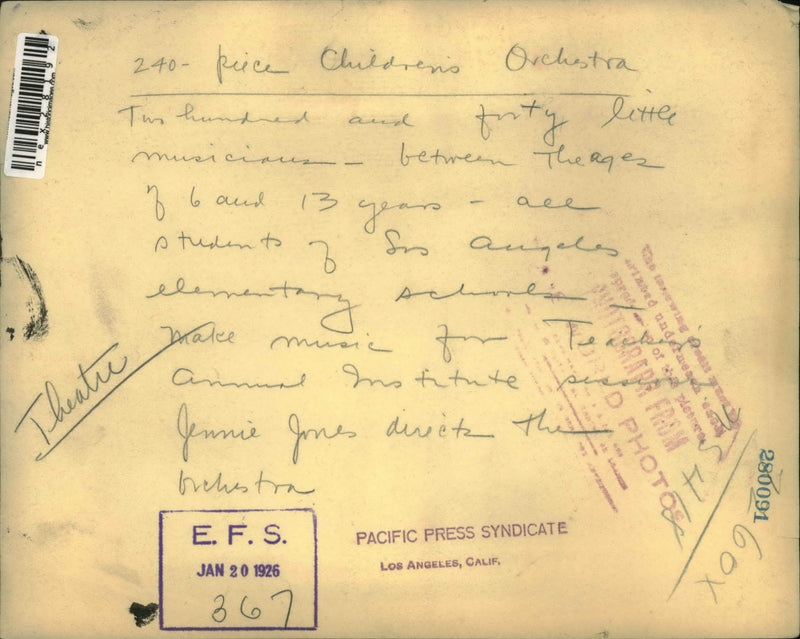 240- piece Childrens Orchestra
Two hundred and forty little
musicians - between the ages
of 6 and 13 years - all
students of Los Angeles
elementary schools -
make music for Teacher's
Annual Institute sessions
Jennie Jones directs the
Orchestra
Theatre
E. F. S.
JAN 20 1926
367
PACIFIC PRESS SYNDICATE
LOS ANGELES, CALIF.
PHOTOGRAPH FROM
WORLD PHOTOS
280091